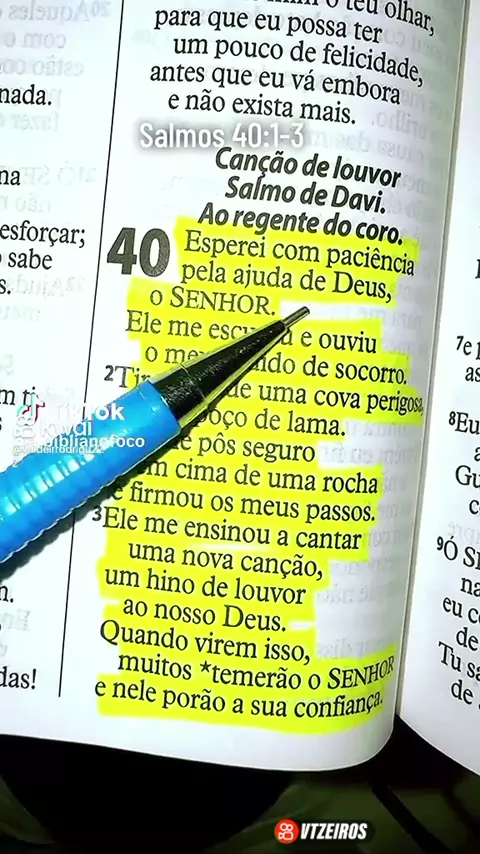 o teu olhar,
para que eu possa ter
um pouco de felicidade,
antes que eu vá embora
e não exista mais.
Salmos 40:1-3
Canção de louvor
Salmo de Davi.
Ao regente do coro.
40 Esperei com paciência
pela ajuda de Deus,
o SENHOR.
Ele me e ouviu
o de socorro.
2 de uma cova perigosa,
poço de lama.
pôs seguro
em cima de uma rocha
e firmou os meus passos.
3Ele me ensinou a cantar
uma nova canção,
um hino de louvor
ao nosso Deus.
Quando virem isso,
muitos *temerão o SENHOR
e nele porão a sua confiança.
nada.
esforçar;
sabe
das!
7e
8Eu
9Ó
eu
de
Tu
de
TikTok
kwai
VTZEIROS